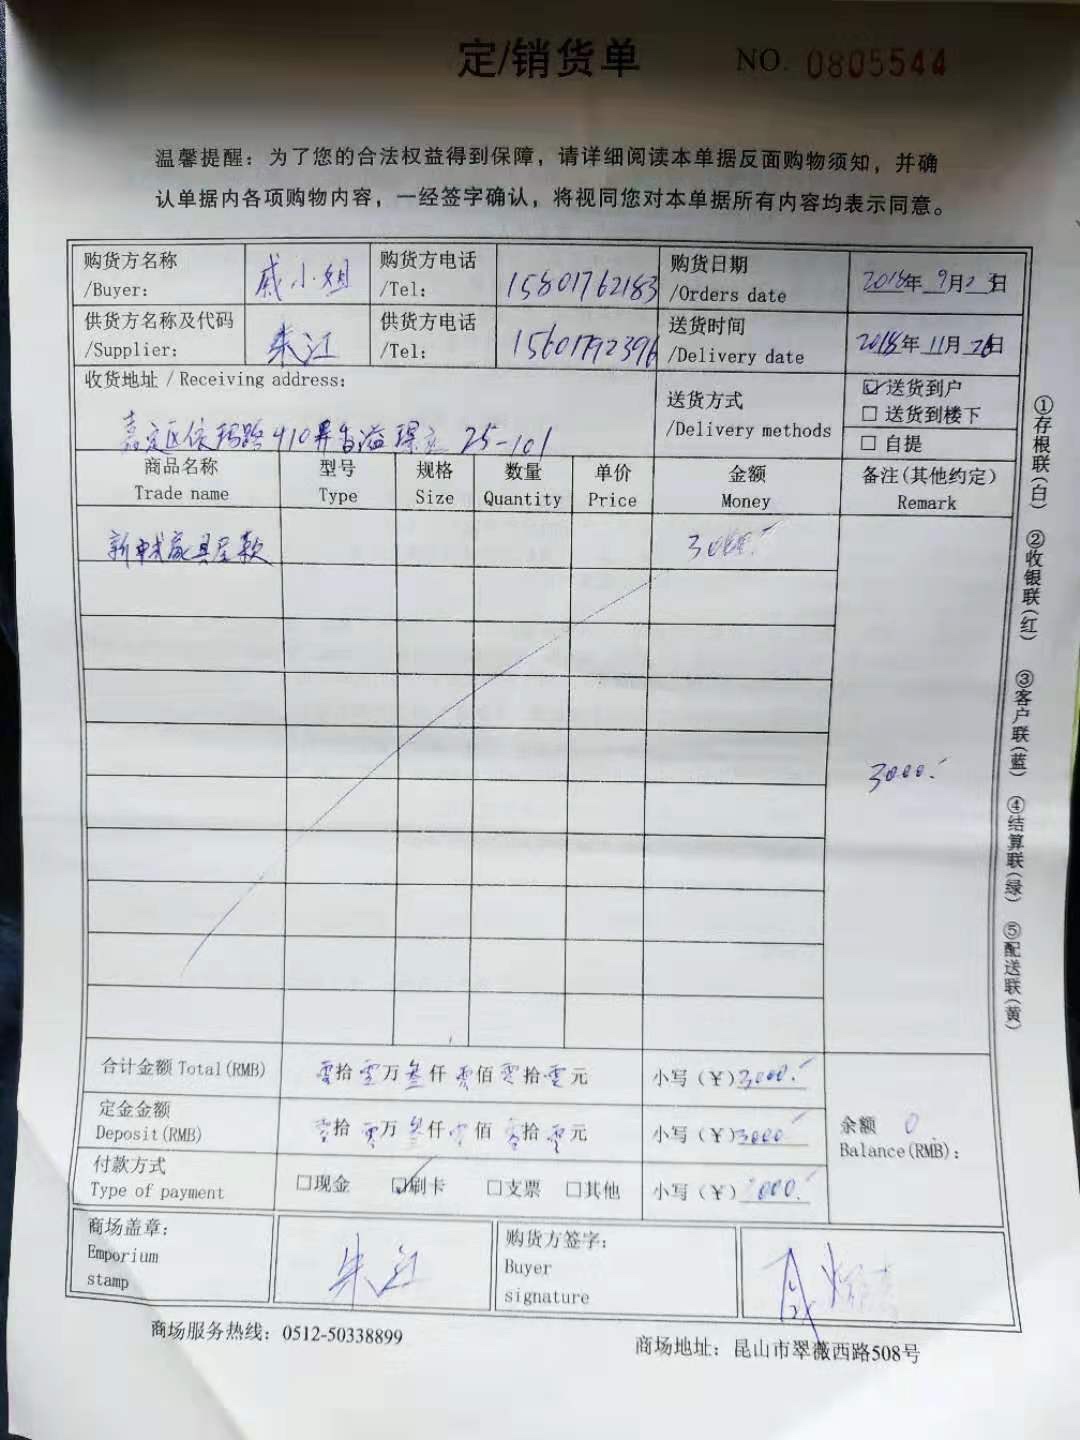 定/销货单 NO. 0805544
温馨提醒：为了您的合法权益得到保障，请详细阅读本单据反面购物须知，并确
认单据内各项购物内容，一经签字确认，将视同您对本单据所有内容均表示同意。
购货方名称 /Buyer: 戚小姐 购货方电话 /Tel: 15801762183 购货日期 /Orders date 2018年9月23日
供货方名称及代码 /Supplier: 朱江 供货方电话 /Tel: 15601792396 送货时间 /Delivery date 2018年11月26日
收货地址 / Receiving address:
嘉定区 路410弄 25-101
送货方式 /Delivery methods
☑送货到户
□送货到楼下
□自提
商品名称 型号 规格 数量 单价 金额 备注(其他约定)
Trade name Type Size Quantity Price Money Remark
新 家具 款 3000.-
3000.-
合计金额 Total(RMB) 零拾零万叁仟零佰零拾零元 小写（¥）3000.-
定金金额 Deposit(RMB) 零拾零万叁仟零佰零拾零元 小写（¥）3000
余额 0
Balance(RMB):
付款方式 Type of payment □现金 ☑刷卡 □支票 □其他 小写（¥）3000.-
商场盖章: Emporium stamp 朱江 购货方签字: Buyer signature 戚
商场服务热线: 0512-50338899 商场地址: 昆山市翠薇西路508号
①存根联(白) ②收银联(红) ③客户联(蓝) ④结算联(绿) ⑤配送联(黄)